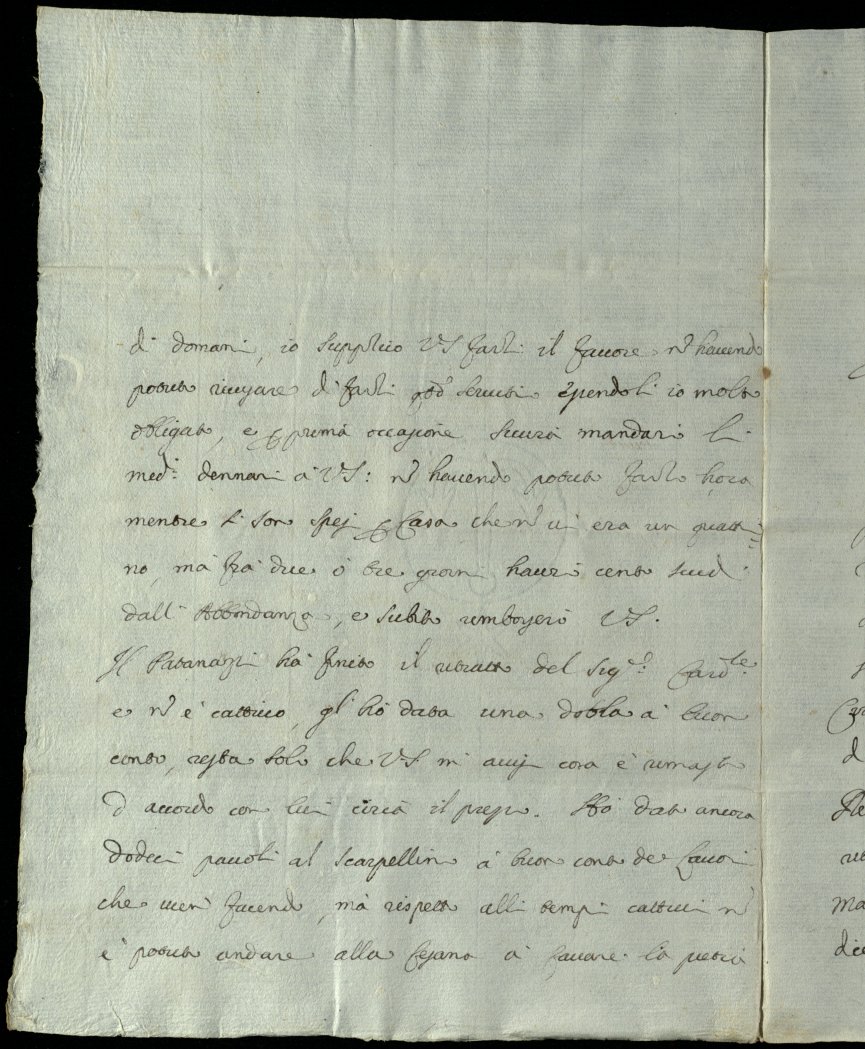 di domani, io supplico VS farli il fauore nō hauendo
potuto ricusare di farli qto seruitio essendoli io molto
obligato, e ꝑ prima occasione sicura mandarò li
med:i dennari à VS: nō hauendo potuto farlo hora
mentre li son spesi ꝑ Casa che nō ui era un quatri=
no, mà frà due ò tre giorni hauerò cento scudi
dall'Abbondanza, e subito rimborserò VS.
Il Patanazzi hà finito il ritratto del Sigre Cardle
e nō è cattiuo, gl'hò data una dobla à buon
conto, resta solo che VS mi auisi cosa è rimasto
d'accordo con lui circà il prezzo. Hò dato ancora
dodeci paoli al Scarpellino à buon conto de lauori
che uien facendo, mà rispetto alli tempi cattiui nō
è potuto andare alla Cesana à cauare la pietra